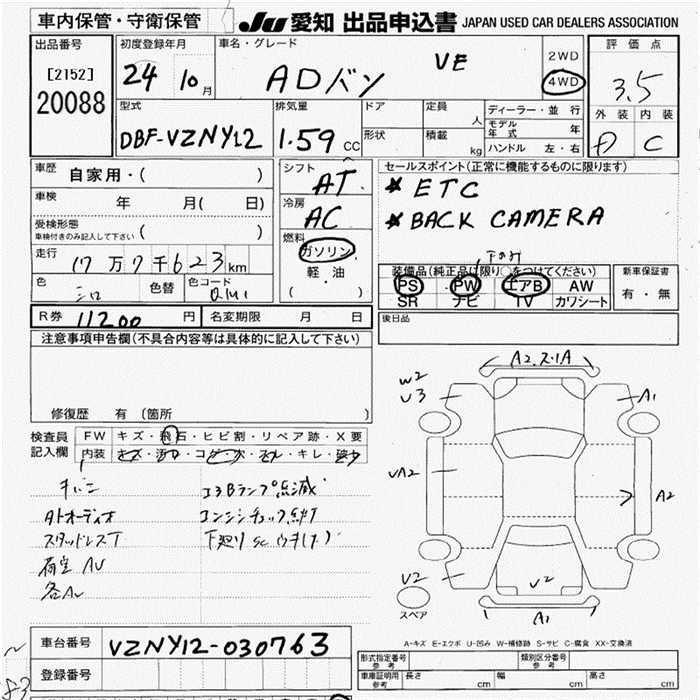 車内保管・守衛保管
JU 愛知 出品申込書 JAPAN USED CAR DEALERS ASSOCIATION
出品番号
[2152]
20088
初度登録年月
24 10月
車名・グレード
ADバン VE
2WD
4WD
評価点
3.5
外装 内装
D C
型式
DBF-VZNY12
排気量
1.59 CC
ドア
形状
定員 人
積載 kg
ディーラー・並行
モデル年式 年
ハンドル 左・右
車歴 自家用・( )
車検 年 月( 日)
受検形態
車検付きのみ記入して下さい ( )
走行 17万7千623km
色 シロ 色替 色コード QM1
シフト
AT
冷房
AC
燃料
ガソリン
軽・油
( )
セールスポイント(正常に機能するものに限ります)
* ETC
* BACK CAMERA
下のみ
装備品(純正品に限り○をつけてください)
PS PW エアB AW
SR ナビ TV カワシート
新車保証書
有・無
R券 11200 円 名変期限 月 日
後日品
注意事項申告欄(不具合内容等は具体的に記入して下さい)
修復歴 有 (箇所 )
検査員
記入欄
FW キズ・飛石・ヒビ割・リペア跡・X要
内装 キズ・汚れ・コゲ・穴・スレ・キレ・破れ
エアBランプ点滅
外オーディオ
エンジンチェック点灯
スタッドレスT
荷室AU
A2.ス.1A
W2
U3
A1
UA2
A2
U2
U2
A1
スペア
A-キズ E-エクボ U-凹み W-補修跡 S-サビ C-腐食 XX-交換済
車台番号 VZNY12-030763
登録番号
形式指定番号
参考
類別区分番号
参考
車庫証明用
参考
長さ cm 幅 cm 高さ cm